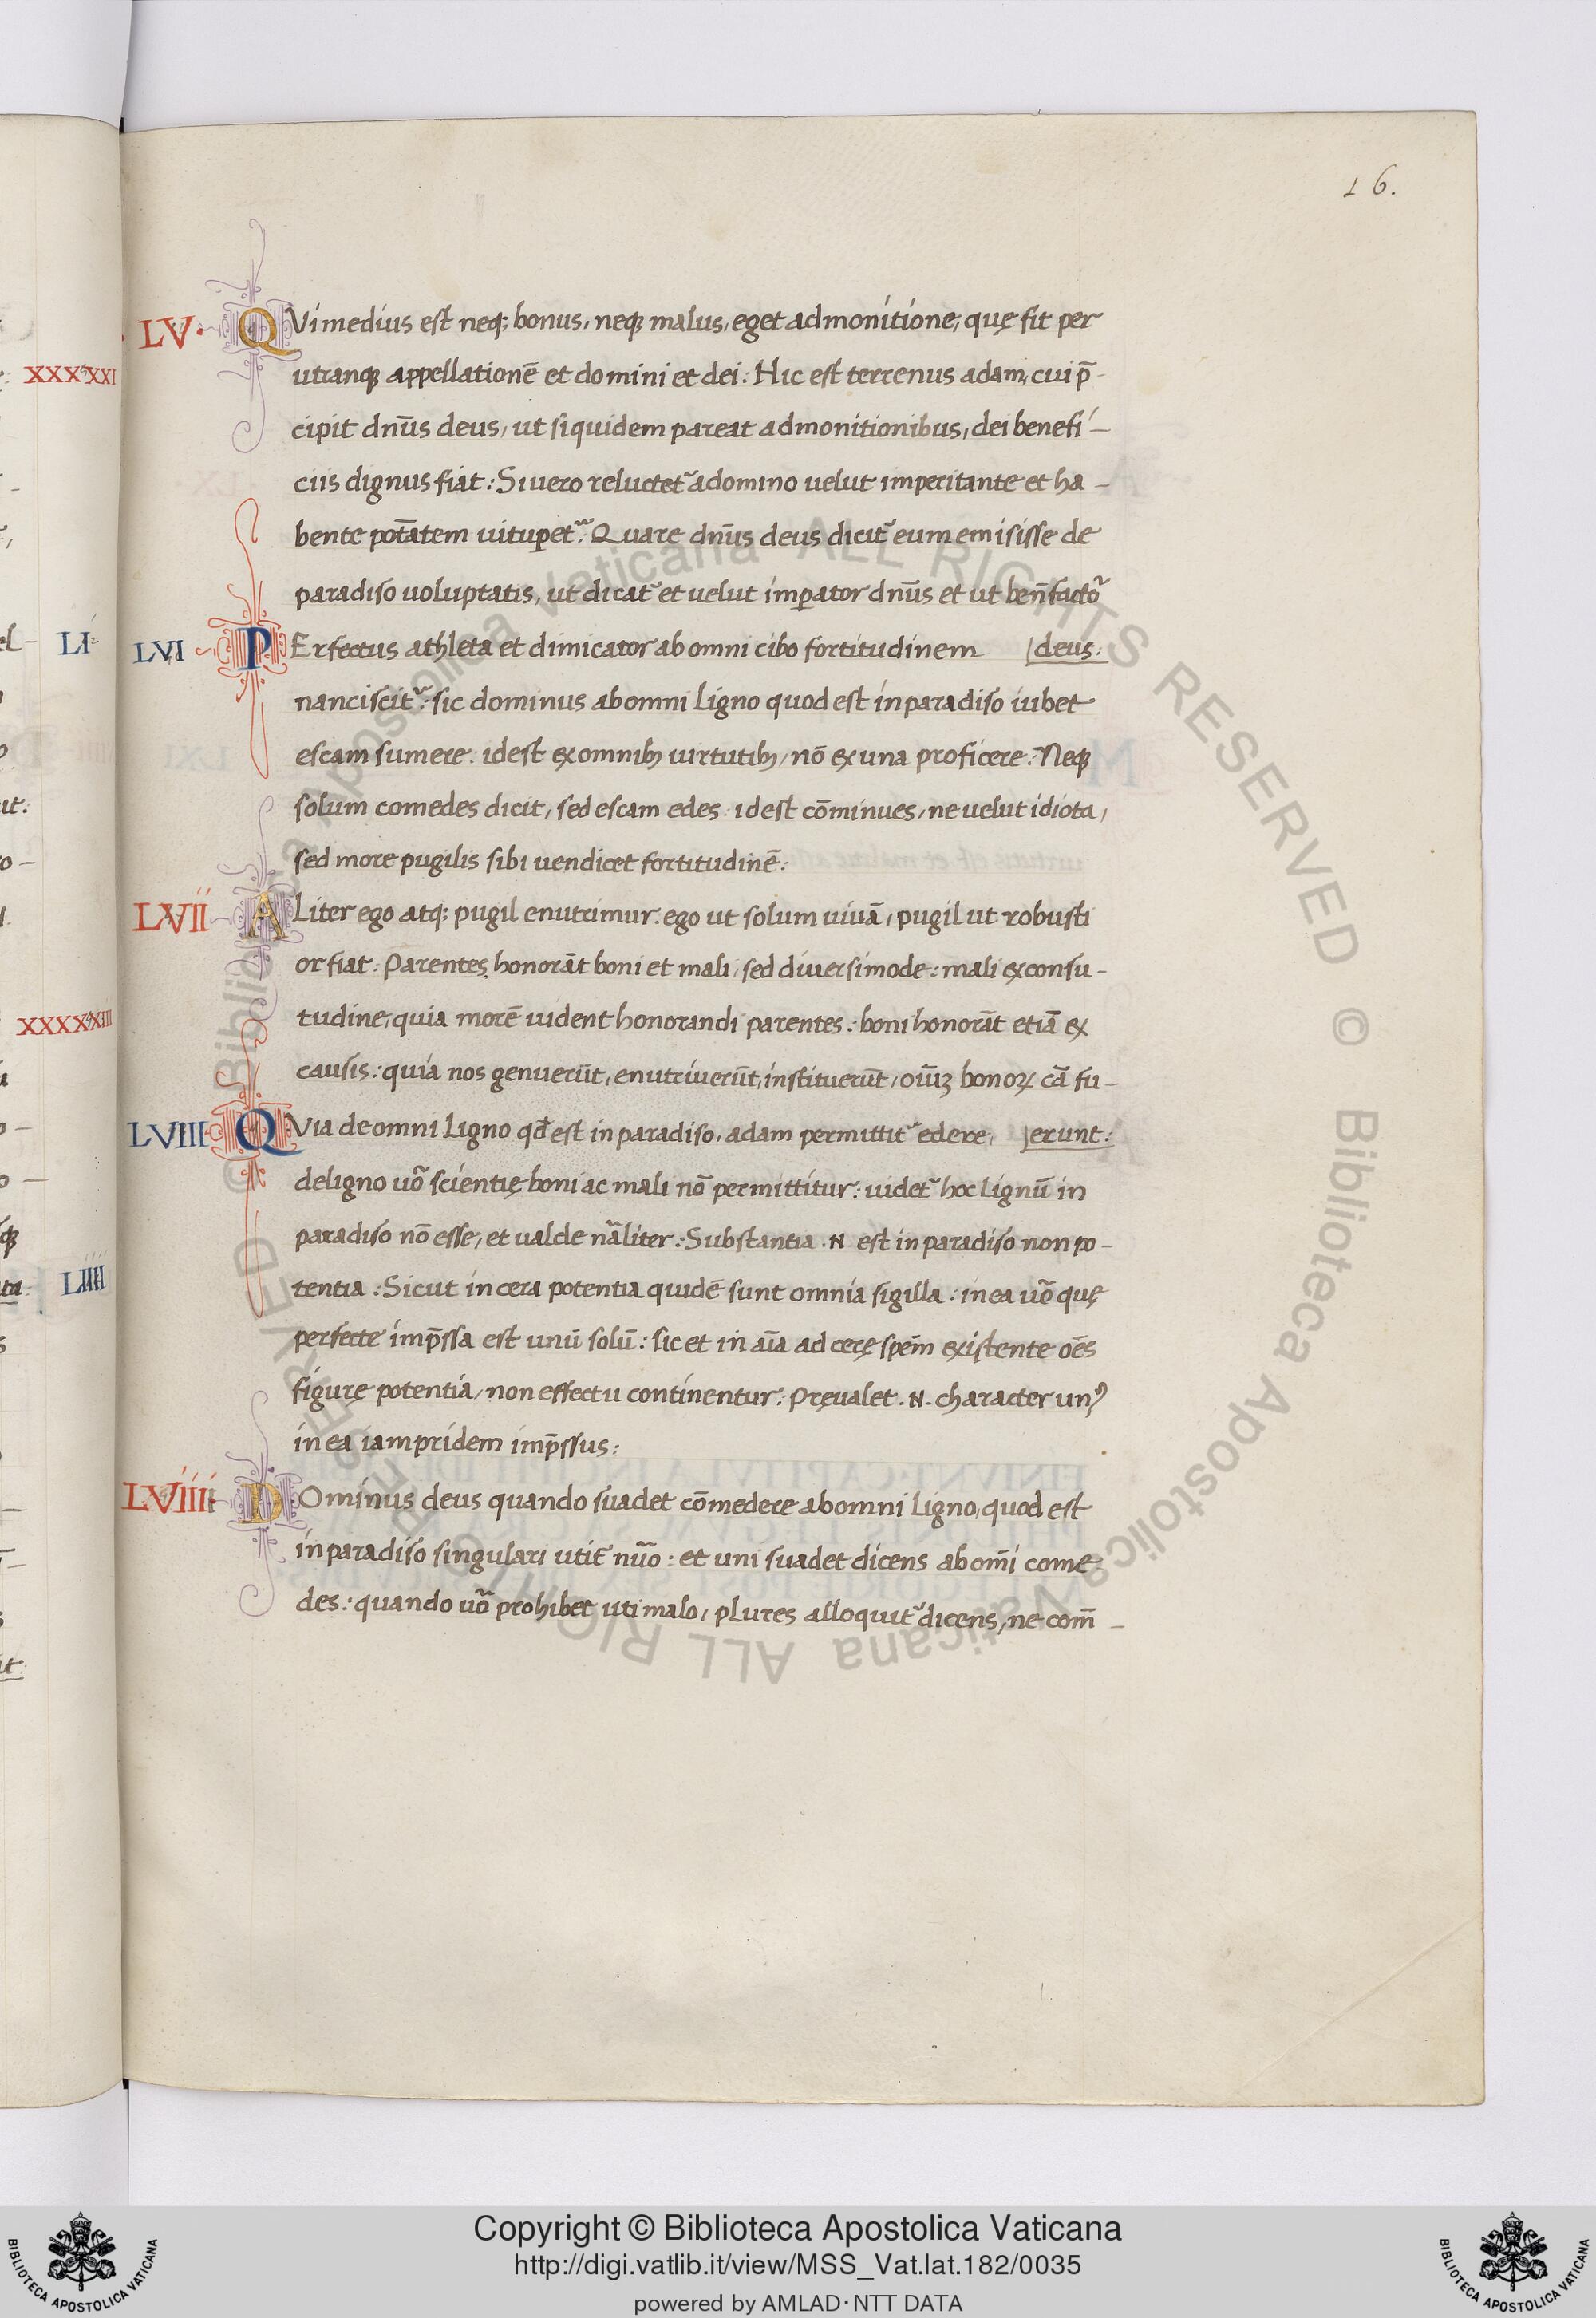 16.
LV· QVi medius est neq; bonus, neq; malus, eget admonitione, quę fit per
utranq; appellationē et domini et dei: Hic est terrenus adam, cui p̄-
cipit dn̄s deus, ut siquidem pareat admonitionibus, dei benefi-
ciis dignus fiat: Si uero reluctet᷑ a domino uelut imperitante et ha-
bente potātem uituꝑet᷑: Quare dn̄s deus dicit᷑ eum emisisse de
paradiso uoluptatis, ut dicat᷑ et uelut imꝑator dn̄s et ut ben̄factor᷑
deus:
LVI PErfectus athleta et dimicator ab omni cibo fortitudinem
nanciscit᷑: sic dominus ab omni ligno quod est in paradiso iubet
escam sumere. idest ex omnibꝫ uirtutibꝫ, nō ex una proficere: Neqꝫ
solum comedes dicit, sed escam edes. idest cōminues, ne uelut idiota,
sed more pugilis sibi uendicet fortitudinē:
LVII ALiter ego atq; pugil enutrimur. ego ut solum uiuā, pugil ut robusti
or fiat: Parentes honorāt boni et mali, sed diuersimode: mali ex consu-
tudine, quia morē uident honorandi parentes: boni honorāt etiā ex
causis: quia nos genuerūt, enutriuerūt, instituerūt, oīuꝫ bonoꝝ cā fu-
erunt:
LVIII QVia de omni ligno qd̄ est in paradiso, adam permittit᷑ edere,
de ligno uō scientię boni ac mali nō permittitur: uidet᷑ hoc lignū in
paradiso nō esse, et ualde nāliter: Substantia .N. est in paradiso non po-
tentia: Sicut in cera potentia quidē sunt omnia sigilla: in ea uō quę
perfecte imp̄ssa est unū solū: sic et in aīa ad cerę spēm existente oēs
figurę potentia, non effectu continentur: Pręualet .N. character unꝰ
in ea iampridem imp̄ssus:
LVIIII DOminus deus quando suadet cōmedere ab omni ligno, quod est
in paradiso singulari utit᷑ nūo: et uni suadet dicens ab om̄i come
des: quando uō prohibet uti malo, plures alloquit᷑ dicens, ne com̄-
XXXXXI
LI
XXXXXIII
LIIII
© Biblioteca Apostolica Vaticana ALL RIGHTS RESERVED © Biblioteca Apostolica Vaticana ALL RIGHTS RESERVED
BIBLIOTECA APOSTOLICA VATICANA
Copyright © Biblioteca Apostolica Vaticana
http://digi.vatlib.it/view/MSS_Vat.lat.182/0035
powered by AMLAD·NTT DATA
BIBLIOTECA APOSTOLICA VATICANA